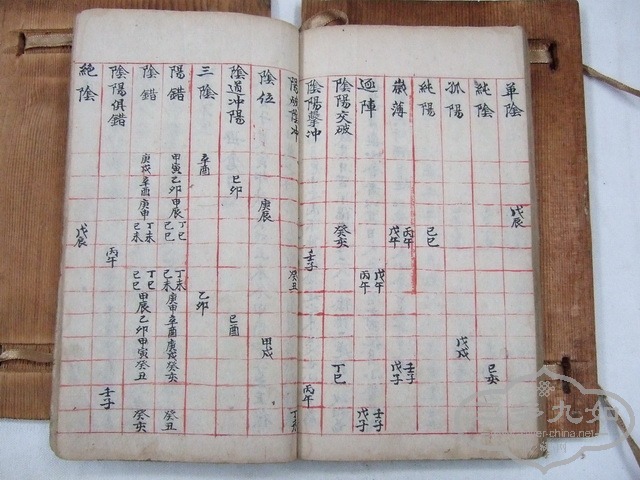 單陰 戊辰
純陰 己亥
孤陽 戊戌
純陽 己巳
歲薄 丙午 戊午 壬子 戊子
逐陣 戊午 丙午 壬子 戊子
陰陽交破 癸亥 丁巳
陰陽擊冲 壬子 丙午
陽破陰冲 癸丑 丁未
陰位 庚辰 甲戌
陰道冲陽 己卯 己酉
三陰 辛酉 乙卯
陽錯 甲寅 乙卯 甲辰 丁巳 己巳 丁未 己未 庚申 辛酉 庚戌 癸亥 癸丑
陰錯 庚戌 辛酉 庚申 丁未 己未 丁巳 己巳 甲辰 乙卯 甲寅 癸丑 癸亥
陰陽俱錯 丙午 壬子
絕陰 戊辰
九如